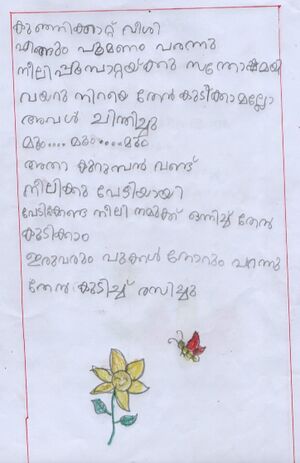 കുഞ്ഞിക്കാറ്റ് വീശി
എങ്ങും പൂമണം പരന്നു
നീലിപ്പൂമ്പാറ്റയ്ക്കു സന്തോഷമായി
വയറു നിറയെ തേൻ കുടിക്കാമല്ലോ
അവൾ ചിന്തിച്ചു
മൂം.... മൂം.....മൂം
അതാ കുറുമ്പൻ വണ്ട്
നീലിക്കു പേടിയായി
പേടിക്കേണ്ട നീലി നമുക്ക് ഒന്നിച്ച് തേൻ
കുടിക്കാം
ഇരുവരും പൂക്കൾ തോറും പറന്നു
തേൻ കുടിച്ച് രസിച്ചു